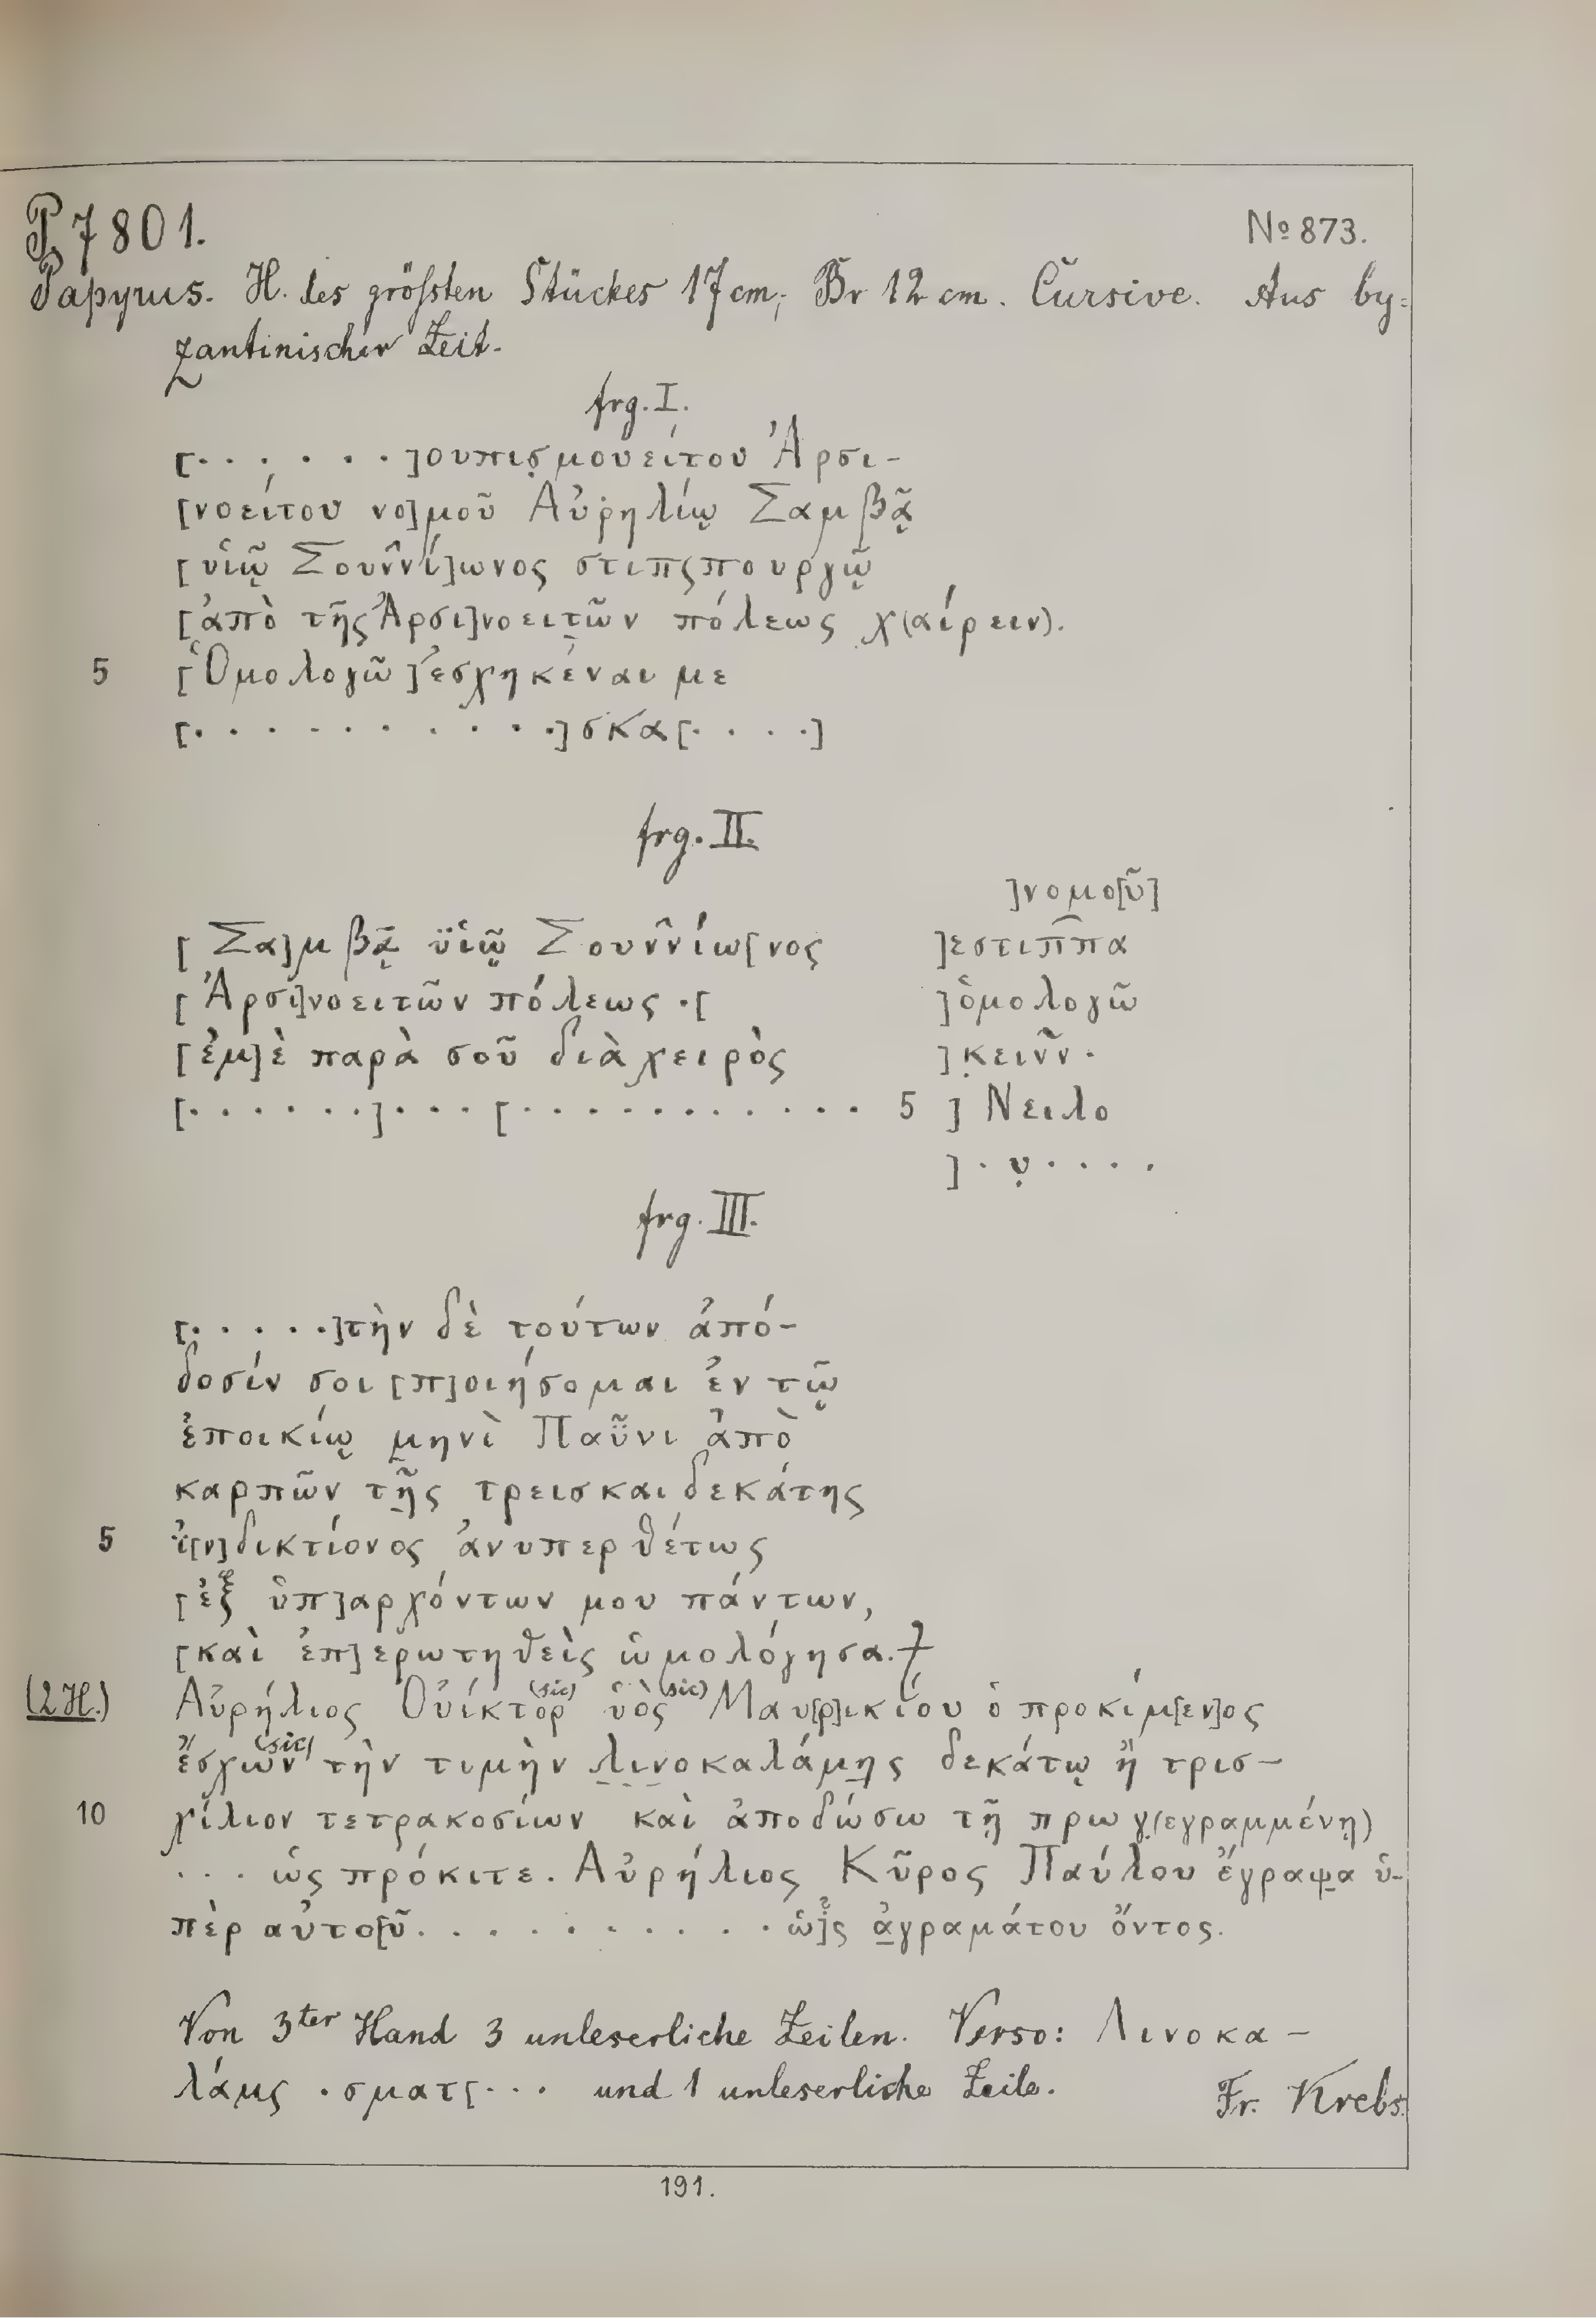 P. 7801.
No 873.
Papyrus. H. des größten Stückes 17 cm, Br 12 cm. Cursive. Aus by-
zantinischer Zeit.
frg. I.
[· · · · · ·]ουπισ̣μουείτου Ἀρσι-
[νοείτου νο]μοῦ Αὐρηλίῳ Σαμβᾷ
[υἱῷ Σουν̂νί]ωνος στιπςπουργῷ
[ἀπὸ τῆς Ἀρσι]νοειτ̣ῶν πόλεως χ(αίρειν).
5 [Ὁμολογῶ] ἐσχηκέναι με
[· · · · · · · · · · ·]σκα[· · · ·]
frg. II.
]νομο[ῦ]
[Σα]μβᾷ ϋἱῷ Σουν̂νίω[νος ]εστιπ̂πα
[Ἀρσι]νοειτῶν πόλεως ·[ ]ὁμολογῶ
[ἐμ]ὲ παρὰ σοῦ διὰ χειρὸς ]κ̣ειν̂ν·
[· · · · · ·]· · · [· · · · · · · · · · · 5 ] Νειλο
] · υ̣ · · · ·
frg. III.
[· · · · ·]τὴν δὲ τούτων ἀπό-
δοσίν σοι [π]οιήσομαι ἐν τῷ
ἐποικίῳ μ̣ηνὶ Παῧνι ἀπὸ
καρπῶν τῆ̣ς τρεισκαιδεκάτης
5 ἰ[ν]δικτίονος ἀνυπερθέτως
[ἐξ ὑπ]αρχόντων μου πάντων,
[καὶ ἐπ]ερωτηθεὶς ὡμολόγησα. ⳨
(2 H.) Αὐρήλιος Οὐίκτορ (sic) ὑὸς (sic) Μαυ[ρ]ικίου ὁ προκίμ[εν]ος
ἔσχων (sic) τὴν τιμὴν λ̣ι̣ν̣οκαλάμη̣ς δεκάτῳ ἢ τρισ-
10 χίλιον τετρακοσίων καὶ ἀποδώσω τῇ πρωγ̣(εγραμμένῃ)
· · · ὡς πρόκιτε. Αὐρήλιος Κῦρος Παύλου ἔγραψ̣α ὑ-
πὲρ αὐτο[ῦ. · · · · · · · · · · ὡ]ς ἀ̣γραμάτου ὄντος.
Von 3ter Hand 3 unleserliche Zeilen. Verso: Λινοκα-
λάμς ·σματ[· · · und 1 unleserliche Zeile.
Fr. Krebs.
191.